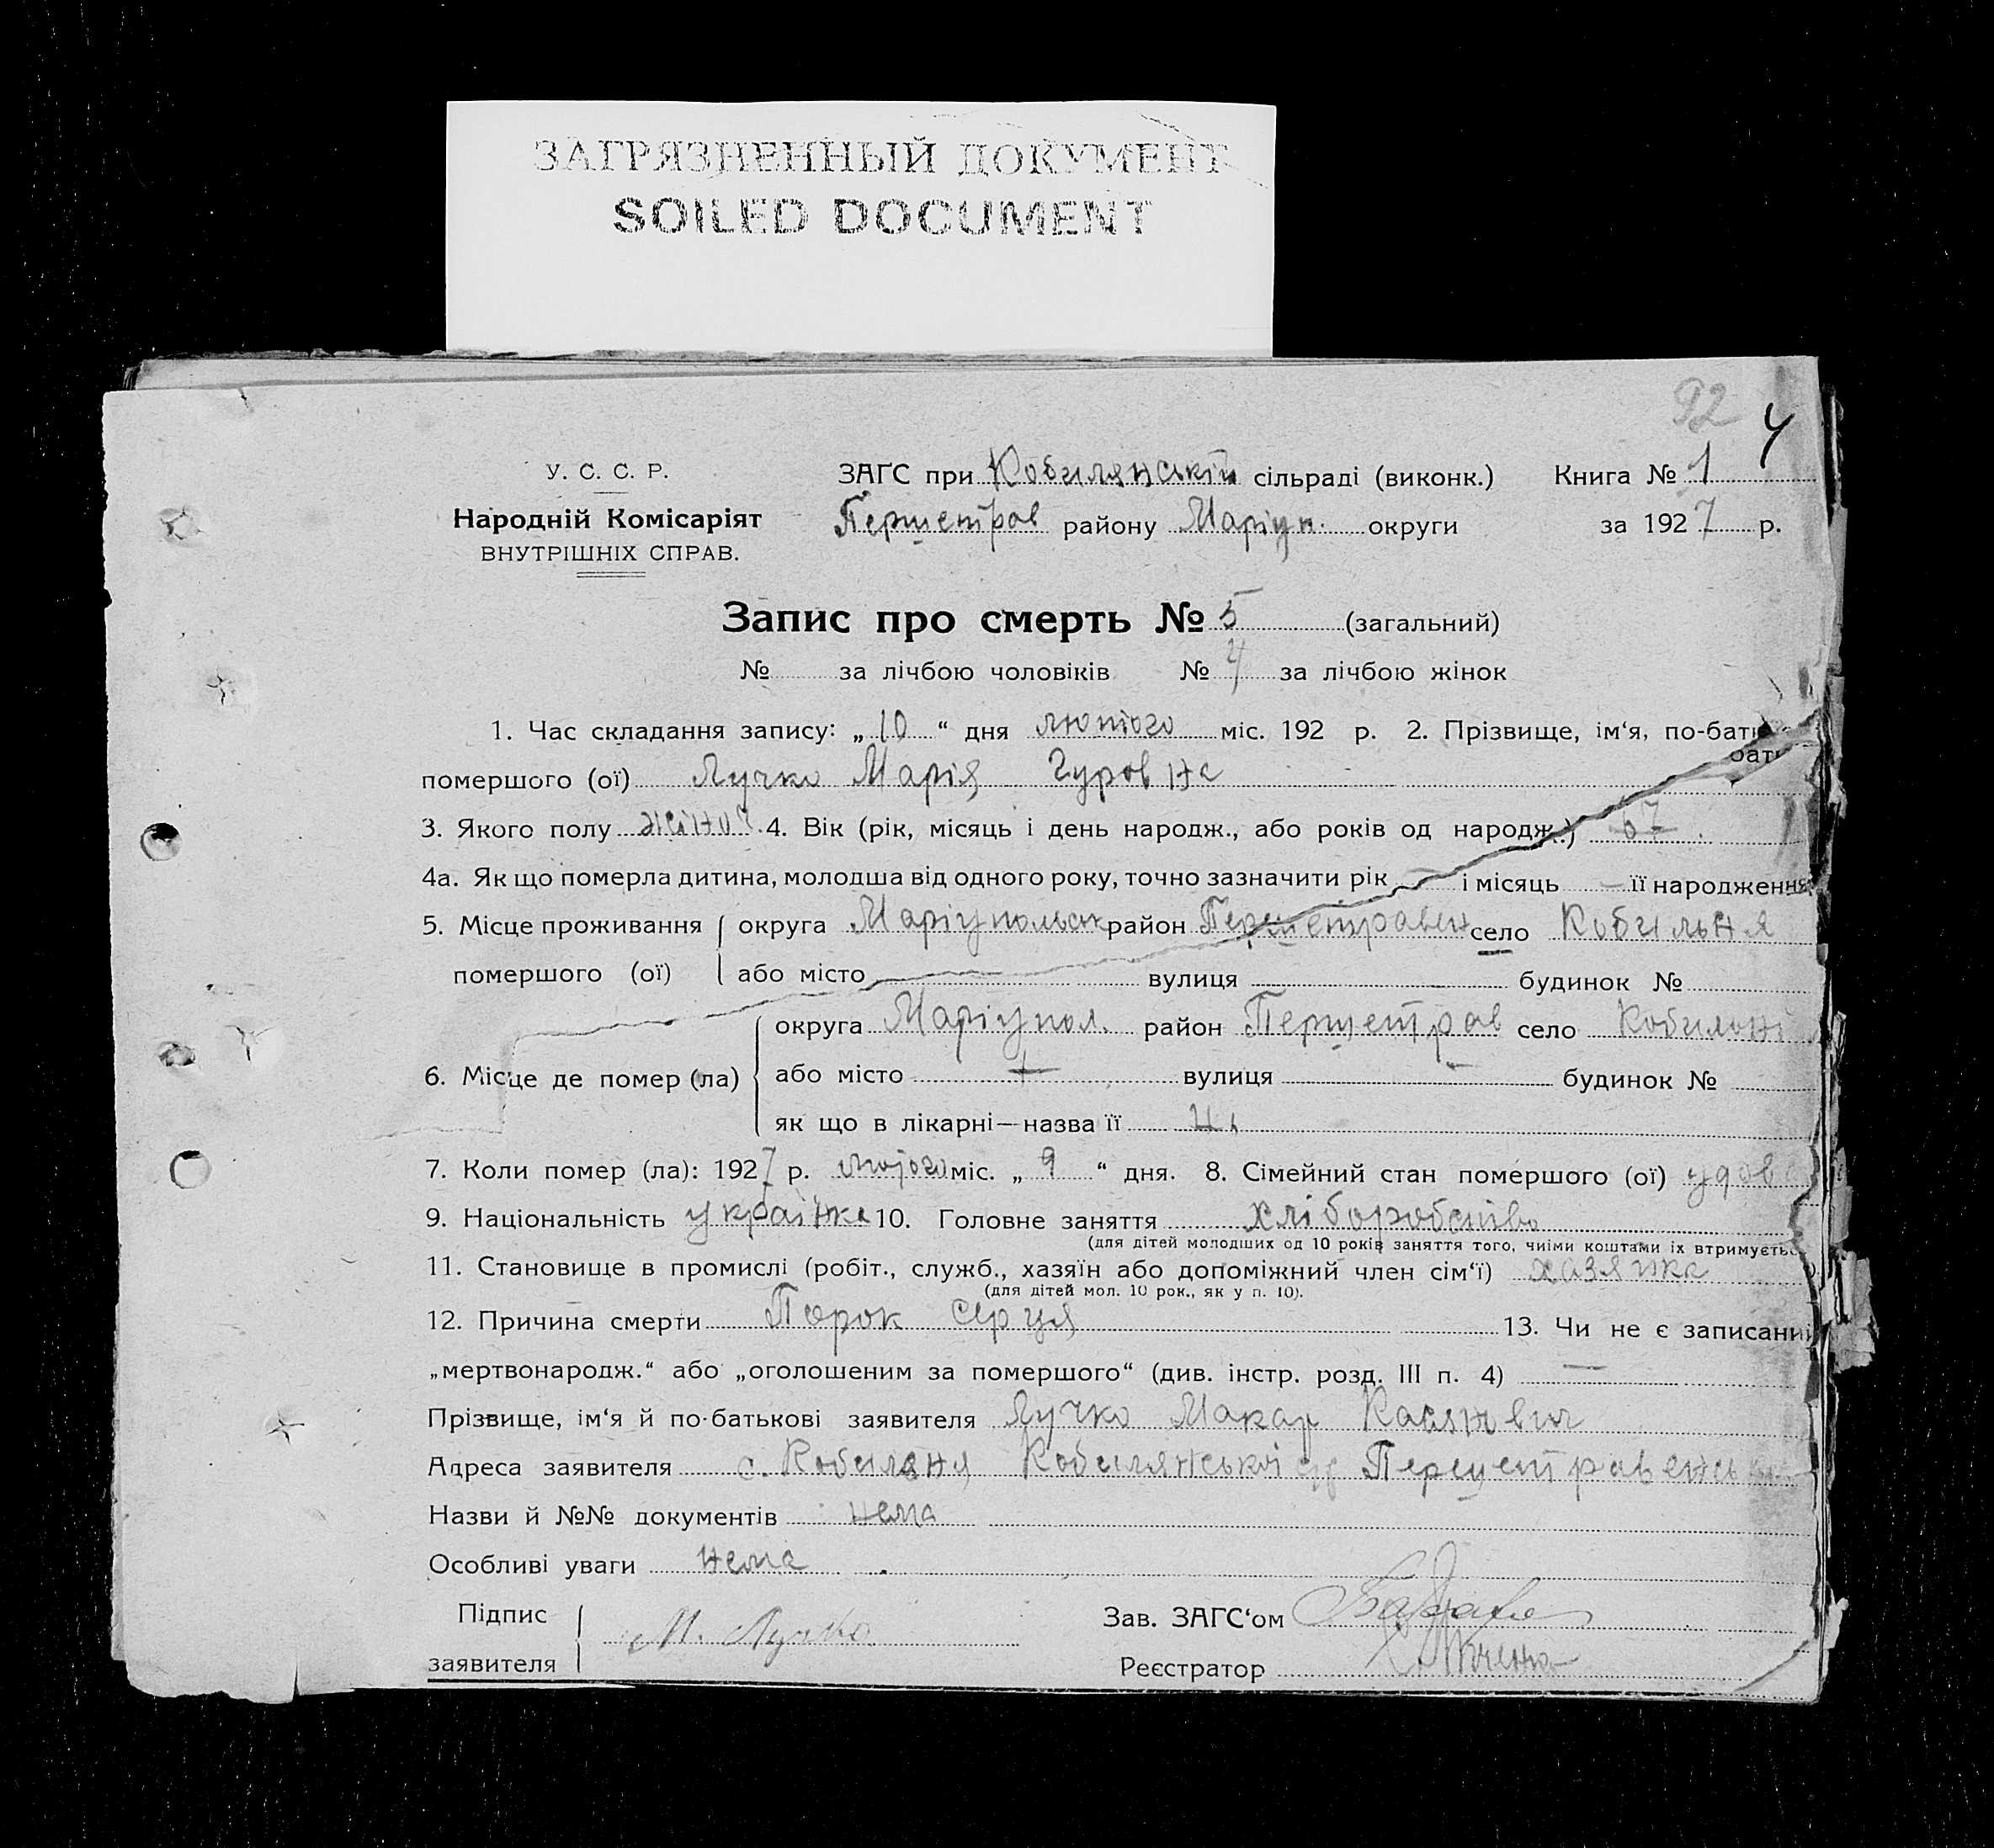 ЗАГРЯЗНЕННЫЙ ДОКУМЕНТ
SOILED DOCUMENT
92 4
У. С. С. Р.
Народній Комісаріят
ВНУТРІШНІХ СПРАВ.
ЗАГС при Кобилянській сільраді (виконк.) Книга № 1
Першетрав району Маріуп. округи за 1927 р.
Запис про смерть № 5 (загальний)
№ за лічбою чоловіків № 4 за лічбою жінок
1. Час складання запису: „10“ дня лютого міс. 192 р. 2. Прізвище, ім‘я, по-батьк
помершого (ої) Лучко Марія Гуровна
3. Якого полу жіноч. 4. Вік (рік, місяць і день народж., або років од народж.) 67
4а. Як що померла дитина, молодша від одного року, точно зазначити рік — і місяць — її народження
5. Місце проживання округа Маріупольськ район Першетравен село Кобильня
помершого (ої) або місто вулиця будинок №
округа Маріупол. район Першетрав село Кобильні
6. Місце де помер (ла) або місто — вулиця — будинок №
як що в лікарні—назва її
7. Коли помер (ла): 1927 р. лютого міс. „9“ дня. 8. Сімейний стан помершого (ої) удова
9. Національність українка 10. Головне заняття хліборобство
(для дітей молодших од 10 років заняття того, чиїми коштами їх втримуєтьс
11. Становище в промислі (робіт., служб., хазяїн або допоміжний член сім‘ї) хазяйка
(для дітей мол. 10 рок., як у п. 10).
12. Причина смерти Порок серця 13. Чи не є записаний
„мертвонародж.“ або „оголошеним за помершого“ (див. інстр. розд. III п. 4) —
Прізвище, ім‘я й по-батькові заявителя Лучко Макар Касянович
Адреса заявителя с. Кобиляня Кобилянської с/р Першетравенськ
Назви й №№ документів нема
Особливі уваги нема
Підпис заявителя М. Лучко
Зав. ЗАГС‘ом
Реєстратор